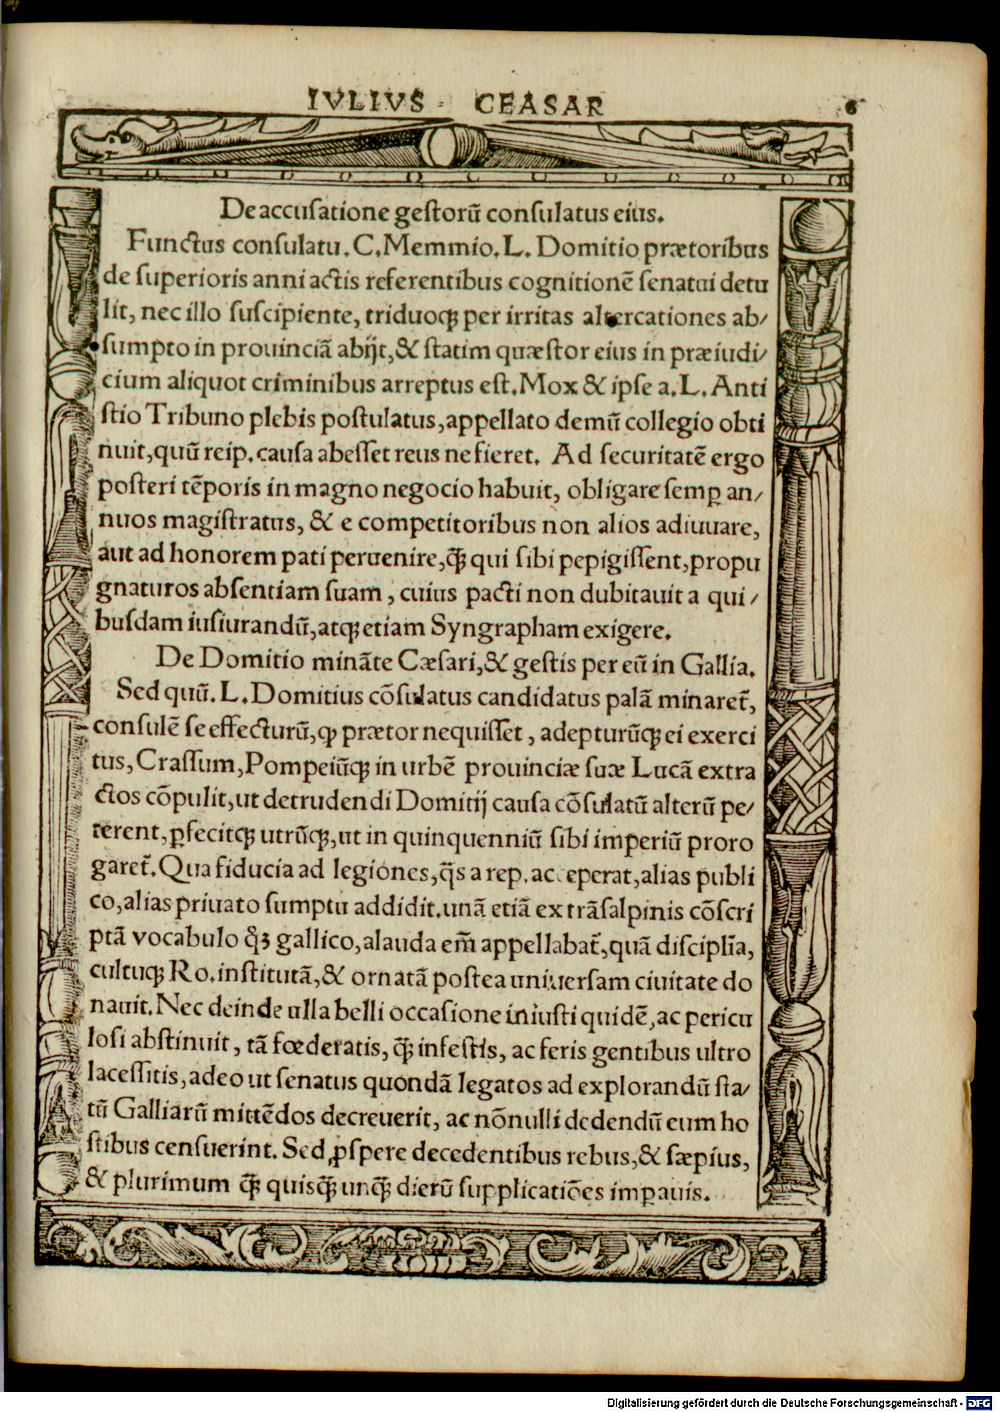 IVLIVS CEASAR 6
De accusatione gestorū consulatus eius.
Functus consulatu. C. Memmio. L. Domitio prætoribus
de superioris anni actis referentibus cognitionē senatui detu
lit, nec illo suscipiente, triduoq́; per irritas altercationes ab/
sumpto in prouinciā abijt, & statim quæstor eius in præiudi/
cium aliquot criminibus arreptus est. Mox & ipse a. L. Anti
stio Tribuno plebis postulatus, appellato demū collegio obti
nuit, quū reip. causa abesset reus ne fieret. Ad securitatē ergo
posteri tēporis in magno negocio habuit, obligare semꝑ an/
nuos magistratus, & e competitoribus non alios adiuuare,
aut ad honorem pati peruenire, q̄ꝫ qui sibi pepigissent, propu
gnaturos absentiam suam, cuius pacti non dubitauit a qui/
busdam iusiurandū, atqꝫ etiam Syngrapham exigere.
De Domitio mināte Cæsari, & gestis per eū in Gallia.
Sed quū. L. Domitius cōsulatus candidatus palā minaret̃,
consulē se effecturū, qꝫ prætor nequisset, adepturūqꝫ ei exerci
tus, Crassum, Pompeiūqꝫ in urbē prouinciæ suæ Lucā extra
ctos cōpulit, ut detrudendi Domitij causa cōsulatū alterū pe/
terent, ꝑfecitqꝫ utrūqꝫ, ut in quinquenniū sibi imperiū proro
garet̃. Qua fiducia ad legiones, q̄s a rep. acceperat, alias publi
co, alias priuato sumptu addidit. unā etiā ex trāsalpinis cōscri
ptā vocabulo qꝫ gallico, alauda em̄ appellabat̃, quā disciplīa,
cultuqꝫ Ro. institutā, & ornatā postea uniuersam ciuitate do
nauit. Nec deinde ulla belli occasione iniusti quidē, ac pericu
losi abstinuit, tā fœderatis, q̄ꝫ infestis, ac feris gentibus ultro
lacessitis, adeo ut senatus quondā legatos ad explorandū sta/
tū Galliarū mittēdos decreuerit, ac nōnulli dedendū eum ho
stibus censuerint. Sed ꝓspere decedentibus rebus, & sæpius,
& plurimum q̄ꝫ quisq̄ꝫ unq̄ꝫ dierū supplicatiōes impauis.
Digitalisierung gefördert durch die Deutsche Forschungsgemeinschaft - DFG